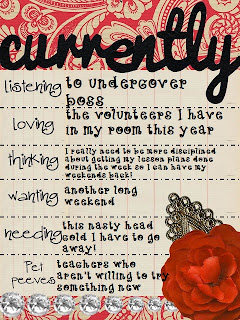 currently
listening to undercover
boss
loving the volunteers I have
in my room this year
thinking I really need to be more disciplined
about getting my lesson plans done
during the week so I can have my
weekends back!
wanting another long
weekend
needing this nasty head
cold I have to go
away!
Pet teachers who
peeves aren't willing to try
something new